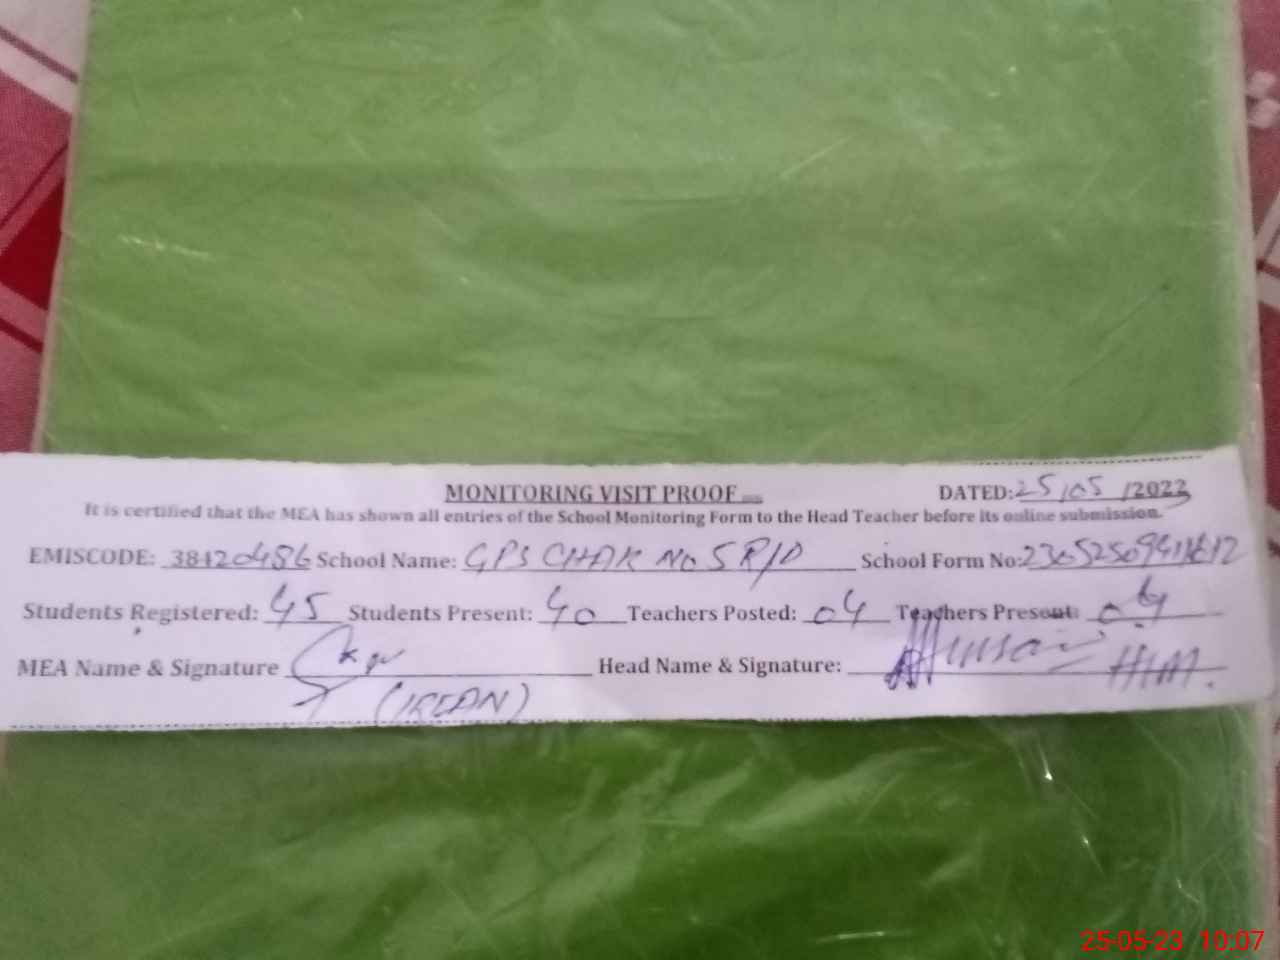 MONITORING VISIT PROOF DATED: 25/05/2023
It is certified that the MEA has shown all entries of the School Monitoring Form to the Head Teacher before its online submission.
EMISCODE: 38420486 School Name: GPS CHAK No 5 R/D School Form No:
Students Registered: 45 Students Present: 40 Teachers Posted: 04 Teachers Present: 04
MEA Name & Signature Head Name & Signature: HM.
(IRFAN)
25-05-23 10:07